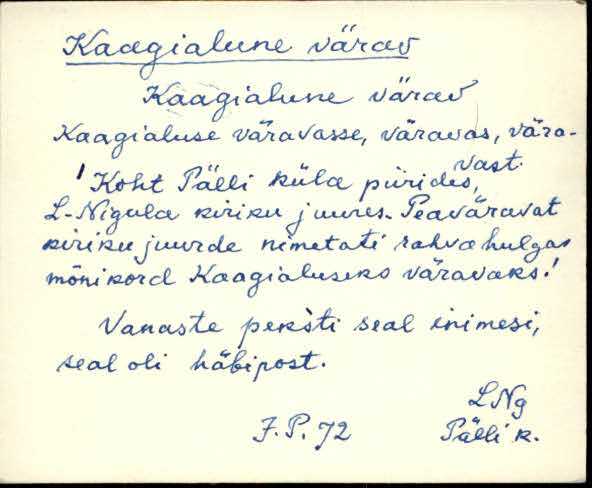 Kaagialune värav
Kaagialune värav
Kaagialuse väravasse, väravas, vära-
vast.
! Koht Pälli küla piirides,
L-Nigula kiriku juures. Peaväravat
kiriku juurde nimetati rahva hulgas
mõnikord Kaagialuseks väravaks!
Vanaste peksti seal inimesi,
seal oli häbipost.
LNg
J.P. 72 Pälli k.